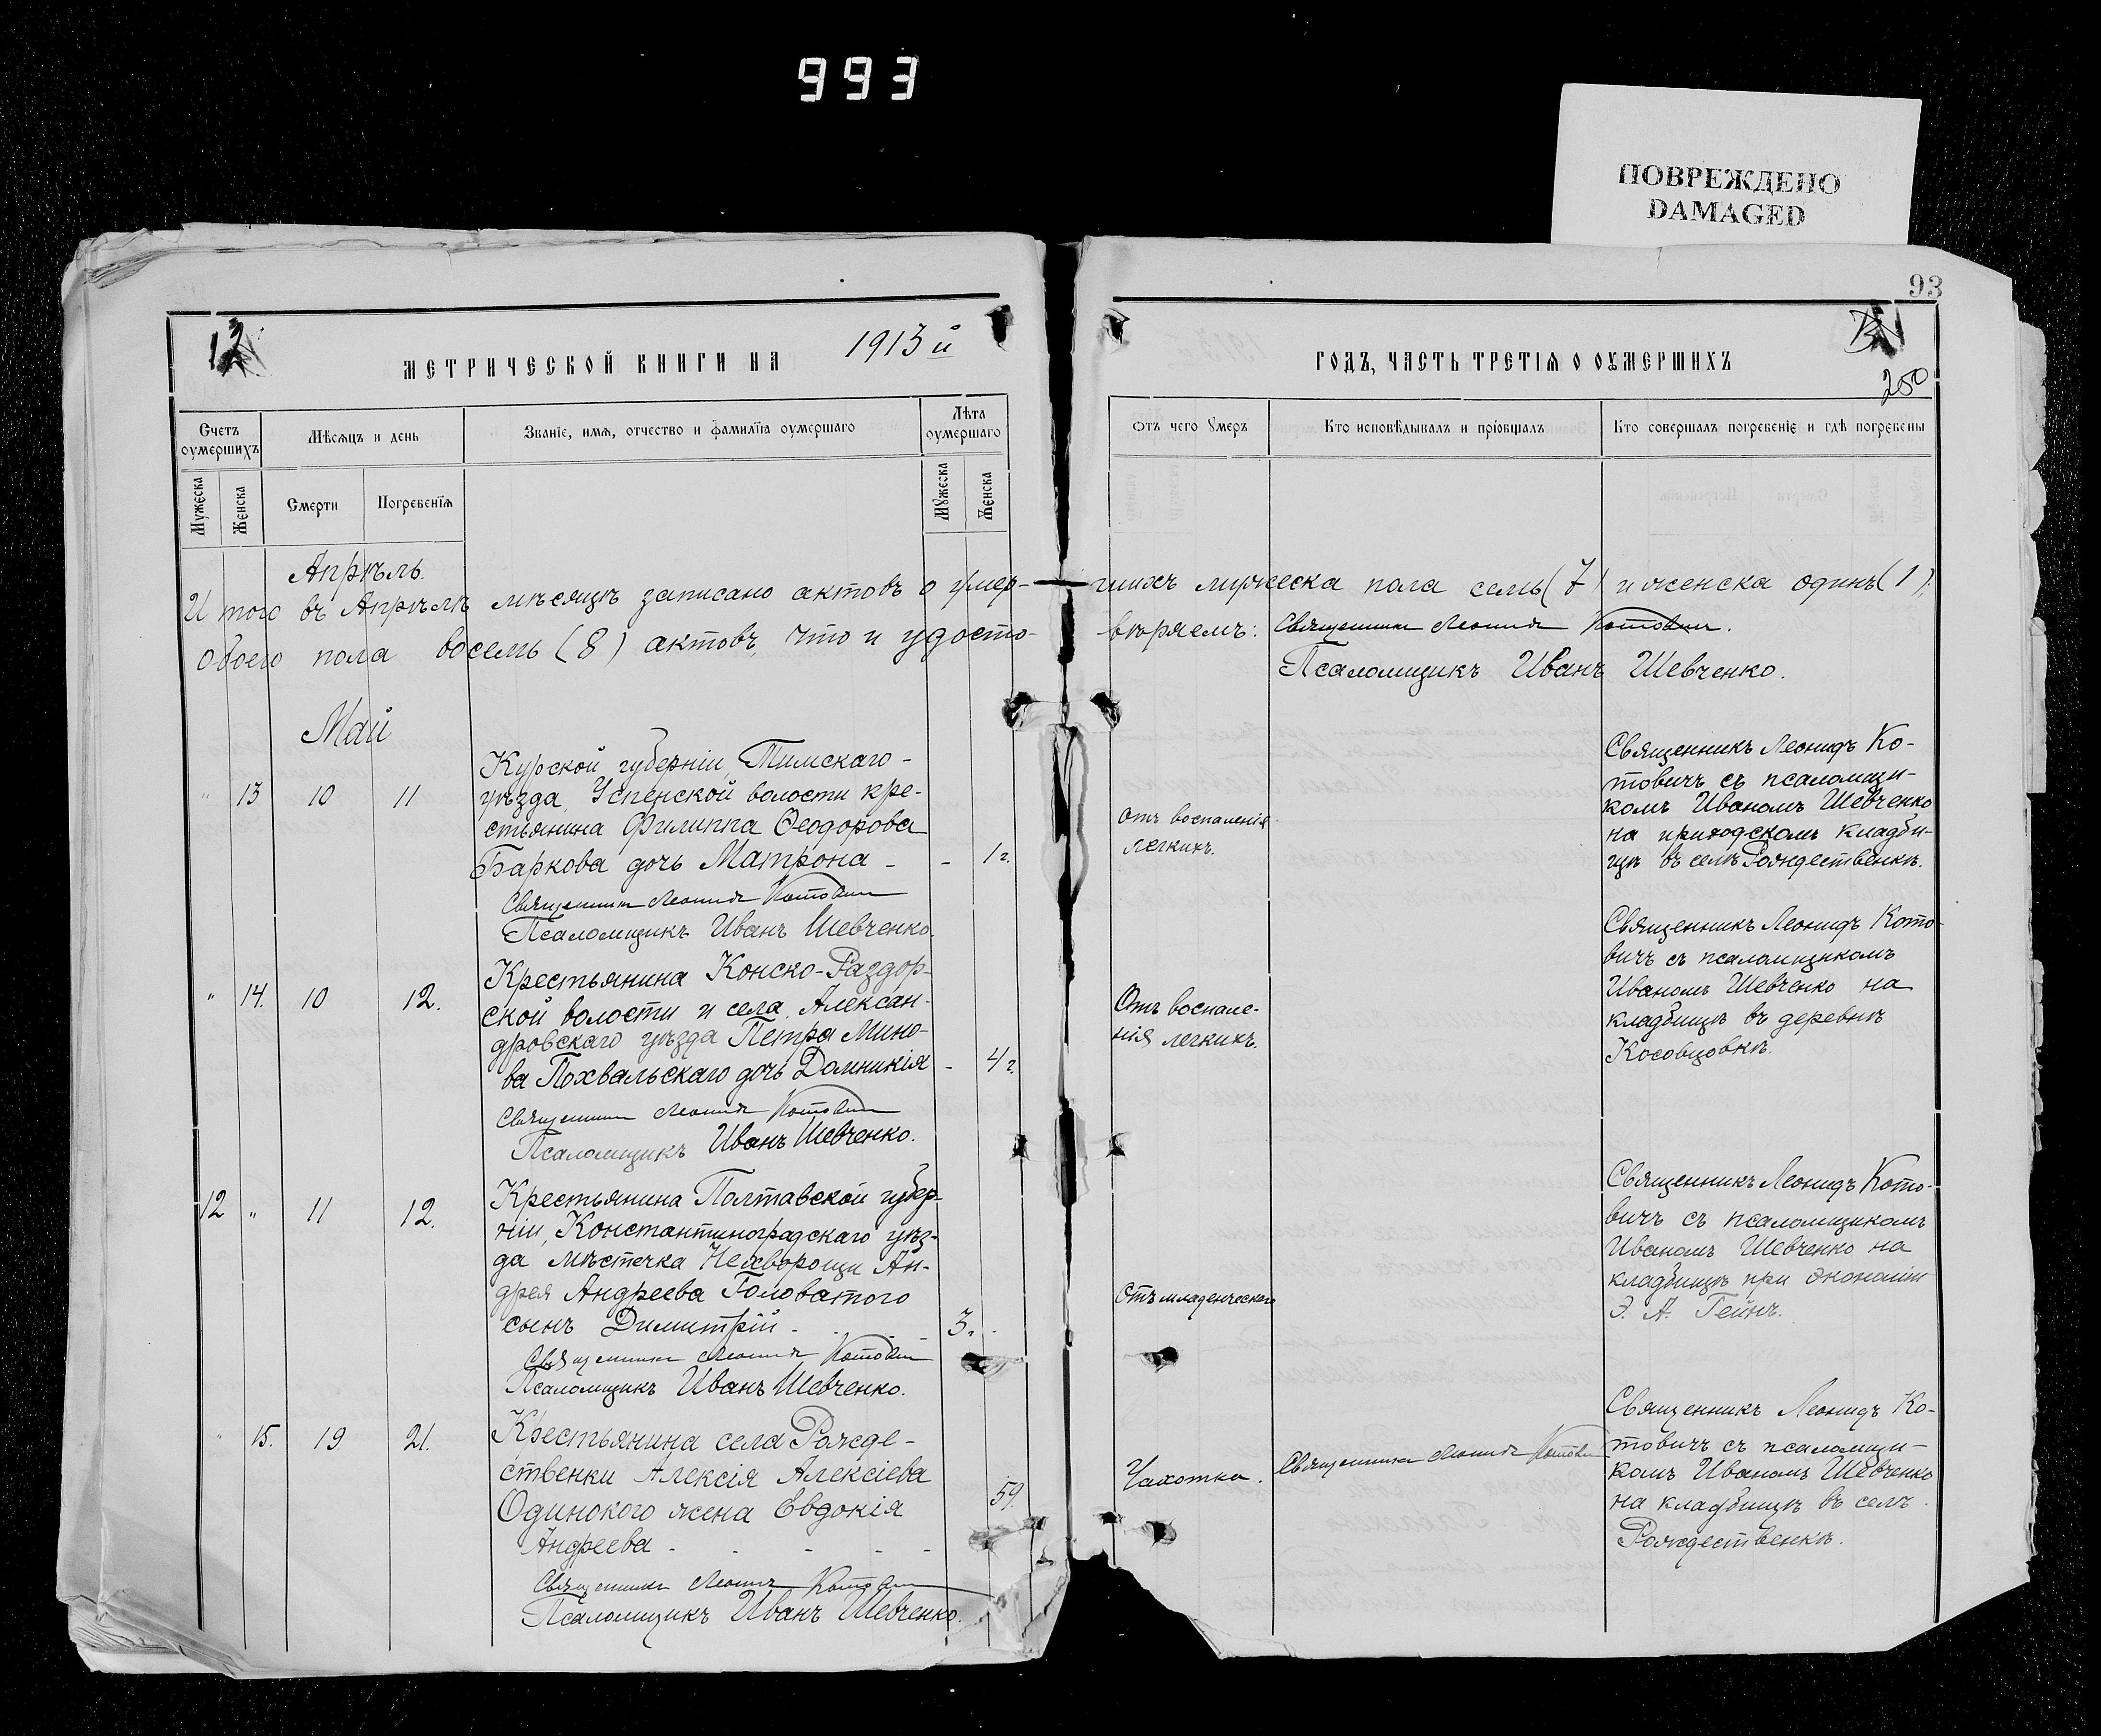 993
ПОВРЕЖДЕНО
DAMAGED
93
12
1913 й
МЕТРИЧЕСКОЙ КНИГИ НА
ГОДЪ, ЧАСТЬ ТРЕТІѦ О ОУМЕРШИХЪ
250
Счетъ оумершихъ
Мѣсяцъ и день
Званіе, имя, отчество и фамилїѧ оумершаго
Лѣта оумершаго
Отъ чего умеръ
Кто исповѣдывалъ и пріобщалъ
Кто совершалъ погребеніе и гдѣ погребены
Мужеска
Женска
Смерти
Погребенїѧ
Мужеска
Женска
Апрѣль.
Итого въ Апрѣлѣ мѣсяцѣ записано актовъ о умер-шихъ мужеска пола семь (7) и женска одинъ (1),
обоего пола восемь (8) актовъ, что и удосто-вѣряемъ: Священникъ Леонидъ Котовичъ.
Псаломщикъ Иванъ Шевченко.
Май
" 13 10 11
Курской губерніи, Тимскаго-
уѣзда, Успенской волости кре-
стьянина Филиппа Ѳеодорова
Баркова дочь Матрона - - 1 г.
Священникъ Леонидъ Котовичъ
Псаломщикъ Иванъ Шевченко.
Отъ воспаленія
легкихъ.
Священникъ Леонидъ Ко-
товичъ съ псаломщи-
комъ Иваномъ Шевченко
на приходскомъ кладби-
щѣ въ селѣ Рождественкѣ.
" 14. 10 12.
Крестьянина Конско-Раздор-
ской волости и села, Алексан-
дровскаго уѣзда Петра Мино-
ва Похвальскаго дочь Домникія - 4 г.
Священникъ Леонидъ Котовичъ
Псаломщикъ Иванъ Шевченко.
Отъ воспале-
нія легкихъ.
Священникъ Леонидъ Кото-
вичъ съ псаломщикомъ
Иваномъ Шевченко на
кладбищѣ въ деревнѣ
Косовцовкѣ.
12 " 11 12.
Крестьянина Полтавской губер-
ніи, Константиноградскаго уѣз-
да мѣстечка Нехворощи Ан-
дрея Андреева Головатого
сынъ Димитрій - - - 3.
Священникъ Леонидъ Котовичъ
Псаломщикъ Иванъ Шевченко.
Отъ младенческаго
Священникъ Леонидъ Кото-
вичъ съ псаломщикомъ
Иваномъ Шевченко на
кладбищѣ при экономіи
Э. А. Гейнъ.
" 15. 19 21.
Крестьянина села Рожде-
ственки Алексія Алексіева
Одинокого жена Евдокія
Андреева - - - - - 59.
Священникъ Леонидъ Котовичъ
Псаломщикъ Иванъ Шевченко.
Чахотка.
Священникъ Леонидъ Котовичъ
Священникъ Леонидъ Ко-
товичъ съ псаломщи-
комъ Иваномъ Шевченко
на кладбищѣ въ селѣ
Рождественкѣ.